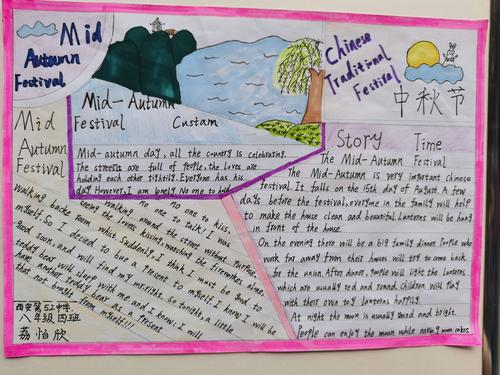 Mid
Autumn
Festival
Chinese
Traditional
Festival
中秋节
Mid
Autumn
Festival
Mid-Autumn
Festival Custam
Mid-autumn day, all the country is celebrating.
The streets are full of people, the loves are
holding each other tightly. Everyone has his
day. However, I am lonely. No one to hold
no one to kiss,
no one to talk! I was
walking around the street without purpose
seeing the loves kissing, watching the fireworks alone.
Walking backe room what Suddenly, I think I must be good to
myself. So I decied to buy a present to myself. I know I will be
good soon, and will find my mr.right. So tonight, a little
teddy bear will sleep with me and I know: I will
have another Teddy bear as a present
that not bought from myself!!!
西安第52中学
八年级四班
荔怡欣
Story Time
The Mid-Autumn Festival
The Mid-Autumn is very important Chinese
festival. It falls on the 15th day of August. A few
days before the festival, everyone in the family will help
to make the house clean and beautiful. Lanterns will be hang
in front of the house.
On the evening there will be a big family dinner. People who
work far away from their houses will try to come back
for the union. After dinner, people will light the lanterns
which are usually red and round. Children will play
with their own toy lanterns happily.
At night the moon is usually round and bright.
People can enjoy the moon while eating moon cakes